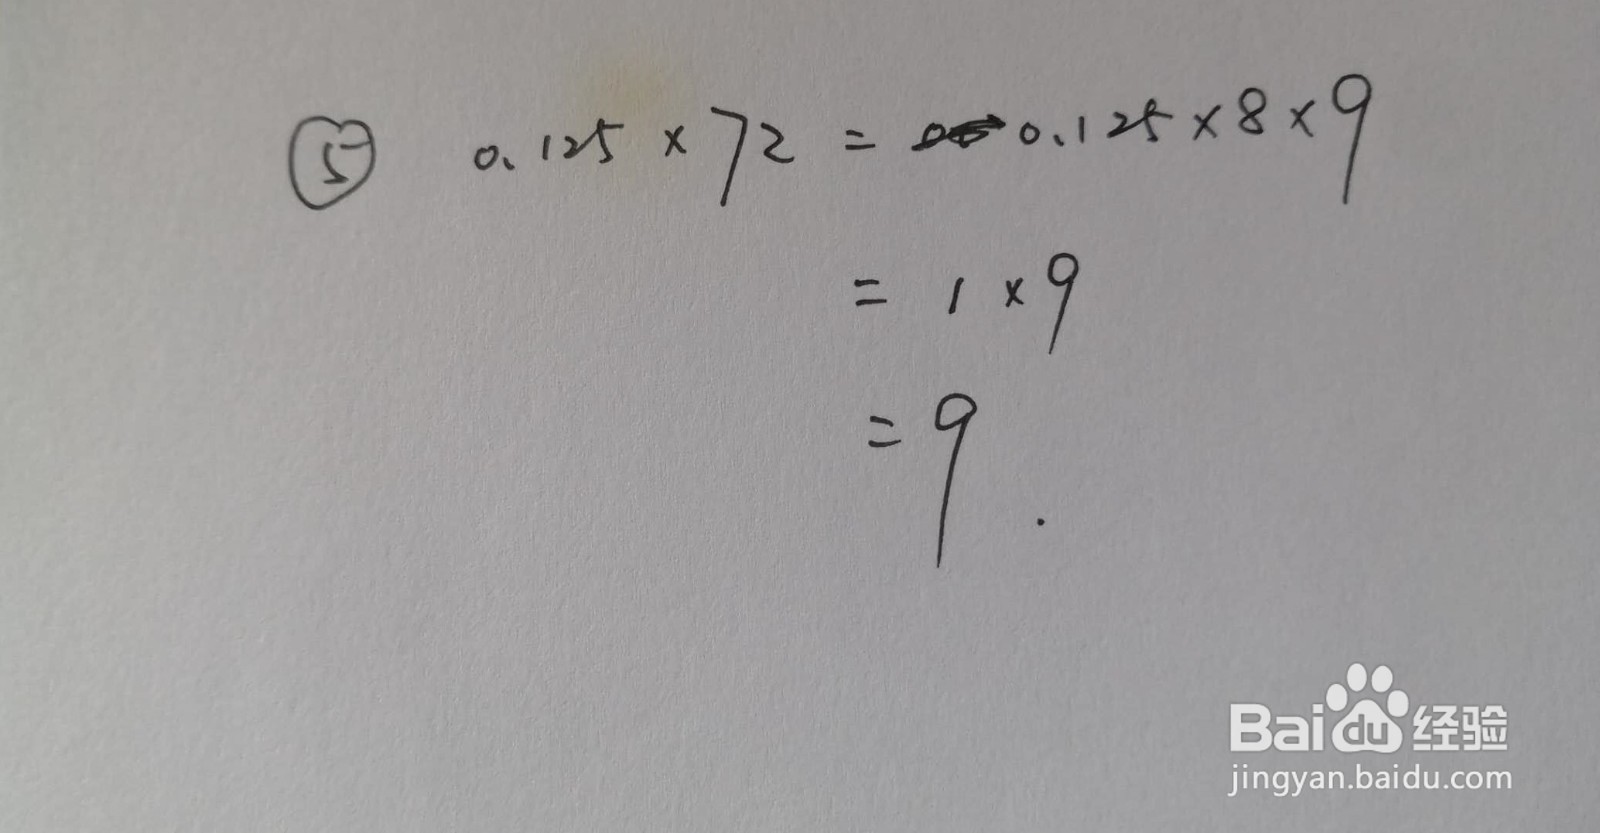 ⑤ 0.125 × 72 = 0.125 × 8 × 9
= 1 × 9
= 9
Baidu经验
jingyan.baidu.com